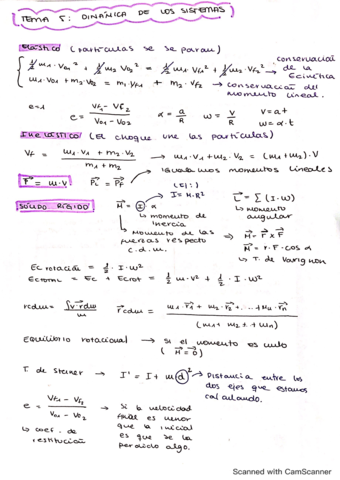 TEMA 5: DINÁMICA DE LOS SISTEMAS
Elástico (partículas se separan)
½ m₁·V₀₁² + ½ m₂ V₀₂² = ½ m₁ Vf₁² + ½ m₂ Vf₂² → conservación de la Ecinética
m₁·V₀₁ + m₂·V₀₂ = m₁·Vf₁ + m₂·Vf₂ → conservación del momento lineal.
e=1
e = (Vf₁ - Vf₂)/(V₀₁ - V₀₂) α = a/R ω = V/R V = a·t
ω = α·t
Inelástico (El choque une las partículas)
Vf = (m₁·V₁ + m₂·V₂)/(m₁ + m₂) → m₁·V₁ + m₂·V₂ = (m₁+m₂)·V
→ Igualamos momentos lineales
P = m·V P⃗i = P⃗f
(Ej:)
I = M·R²
SÓLIDO RÍGIDO M⃗ = I α
↳ momento de inercia
↳ Momento de las fuerzas respecto c.d.m.
L⃗ = Σ (I·ω)
↳ Momento angular
→ M⃗ = r⃗ x F⃗
M⃗ = r·F·cos α
↳ T. de Varignon
Ec rotación = ½ · I·ω²
Ec total = Ec + Ecrot = ½ m·V² + ½ · I·ω²
rcdm = ∫ r⃗ dm / m r⃗cdm = (m₁·r⃗₁ + m₂·r⃗₂ + ... + mₙ·r⃗ₙ)/(m₁ + m₂ + ... + mₙ)
Equilibrio rotacional → si el momento es nulo
(M⃗ = 0⃗)
T. de Steiner → I' = I + m d² → Distancia entre los dos ejes que estamos calculando.
e = (Vf₁ - Vf₂)/(V₀₁ - V₀₂) → Si la velocidad final es menor que la inicial es que se ha perdido algo.
↳ coef. de restitución
Scanned with CamScanner